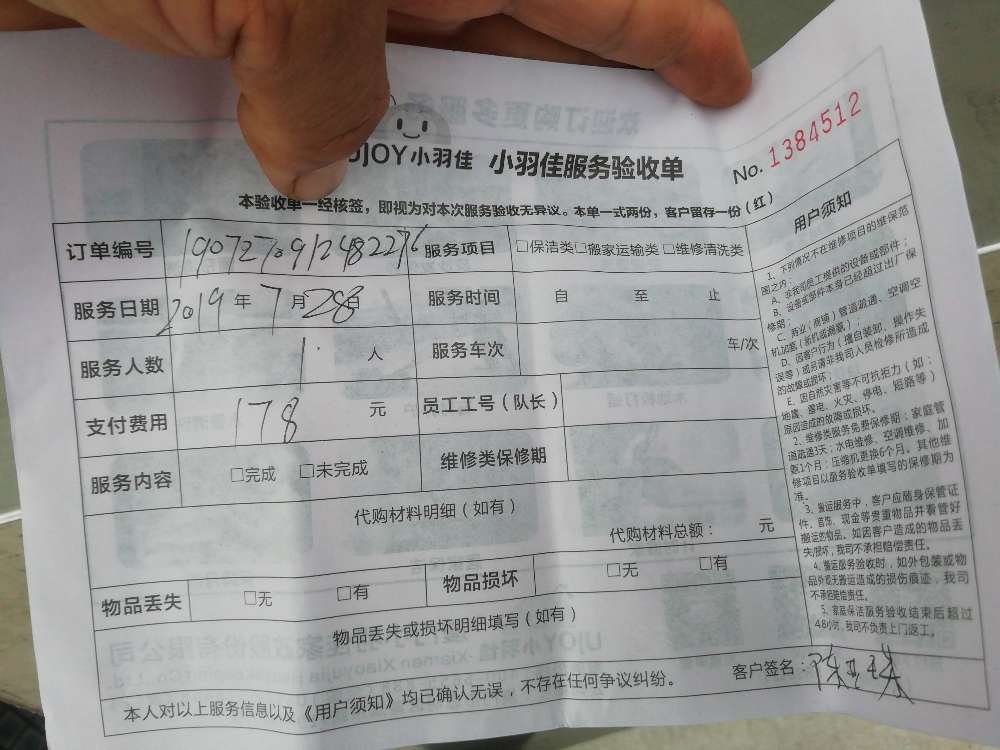 UJOY小羽佳 小羽佳服务验收单
No. 1384512
本验收单一经核签，即视为对本次服务验收无异议。本单一式两份，客户留存一份（红）
订单编号 1907270912482276 服务项目 □保洁类□搬家运输类 □维修清洗类
服务日期 2019年7月28日 服务时间 自 至 止
服务人数 1 人 服务车次 车/次
支付费用 178 元 员工工号（队长）
服务内容 □完成 □未完成 维修类保修期
代购材料明细（如有）
代购材料总额： 元
物品丢失 □无 □有 物品损坏 □无 □有
物品丢失或损坏明细填写（如有）
本人对以上服务信息以及《用户须知》均已确认无误，不存在任何争议纠纷。 客户签名：
用户须知
1、下列情况不在维修项目的维保范
围之内：
A、非我司员工提供的设备或部件；
B、设备或部件本身已经超过出厂保
修期；
C、商业（商铺）管道疏通、空调空
D、因客户行为（擅自装卸、操作失
误等）或另请非我司人员检修所造成
的故障或损坏；
E、因自然灾害等不可抗拒力（如：
地震、雷电、火灾、停电、短路等）
原因造成的故障或损坏。
2、维修类服务免费保修期：家庭管
道疏通3天；水电维修、空调维修、加
氨1个月；压缩机更换6个月。其他维
修项目以服务验收单填写的保修期为
准。
3、搬运服务中，客户应随身保管证
件、首饰、现金等贵重物品并看管好
搬运的物品。如因客户造成的物品丢
失/损坏，我司不承担赔偿责任。
4、搬运服务验收时，如外包装或物
品外观无搬运造成的损伤痕迹，我司
不承担赔偿责任。
5、家庭保洁服务验收结束后超过
48小时，我司不负责上门返工。